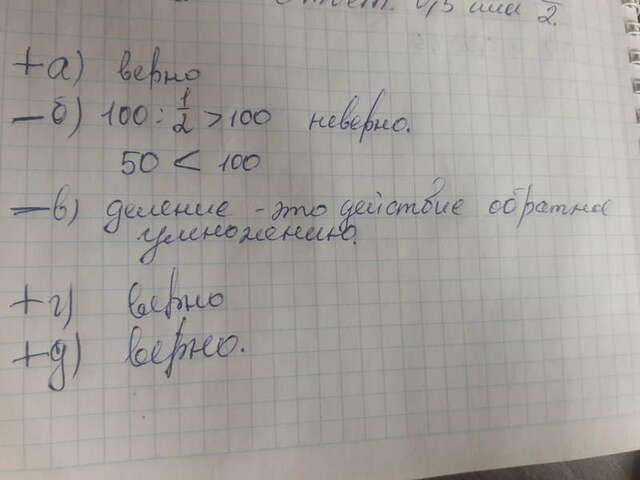 Ответ: 0,5 или 1/2.
+а) верно
-б) 100 : 1/2 > 100 неверно.
50 < 100
-в) деление - это действие обратное
умножению.
+г) верно
+д) верно.